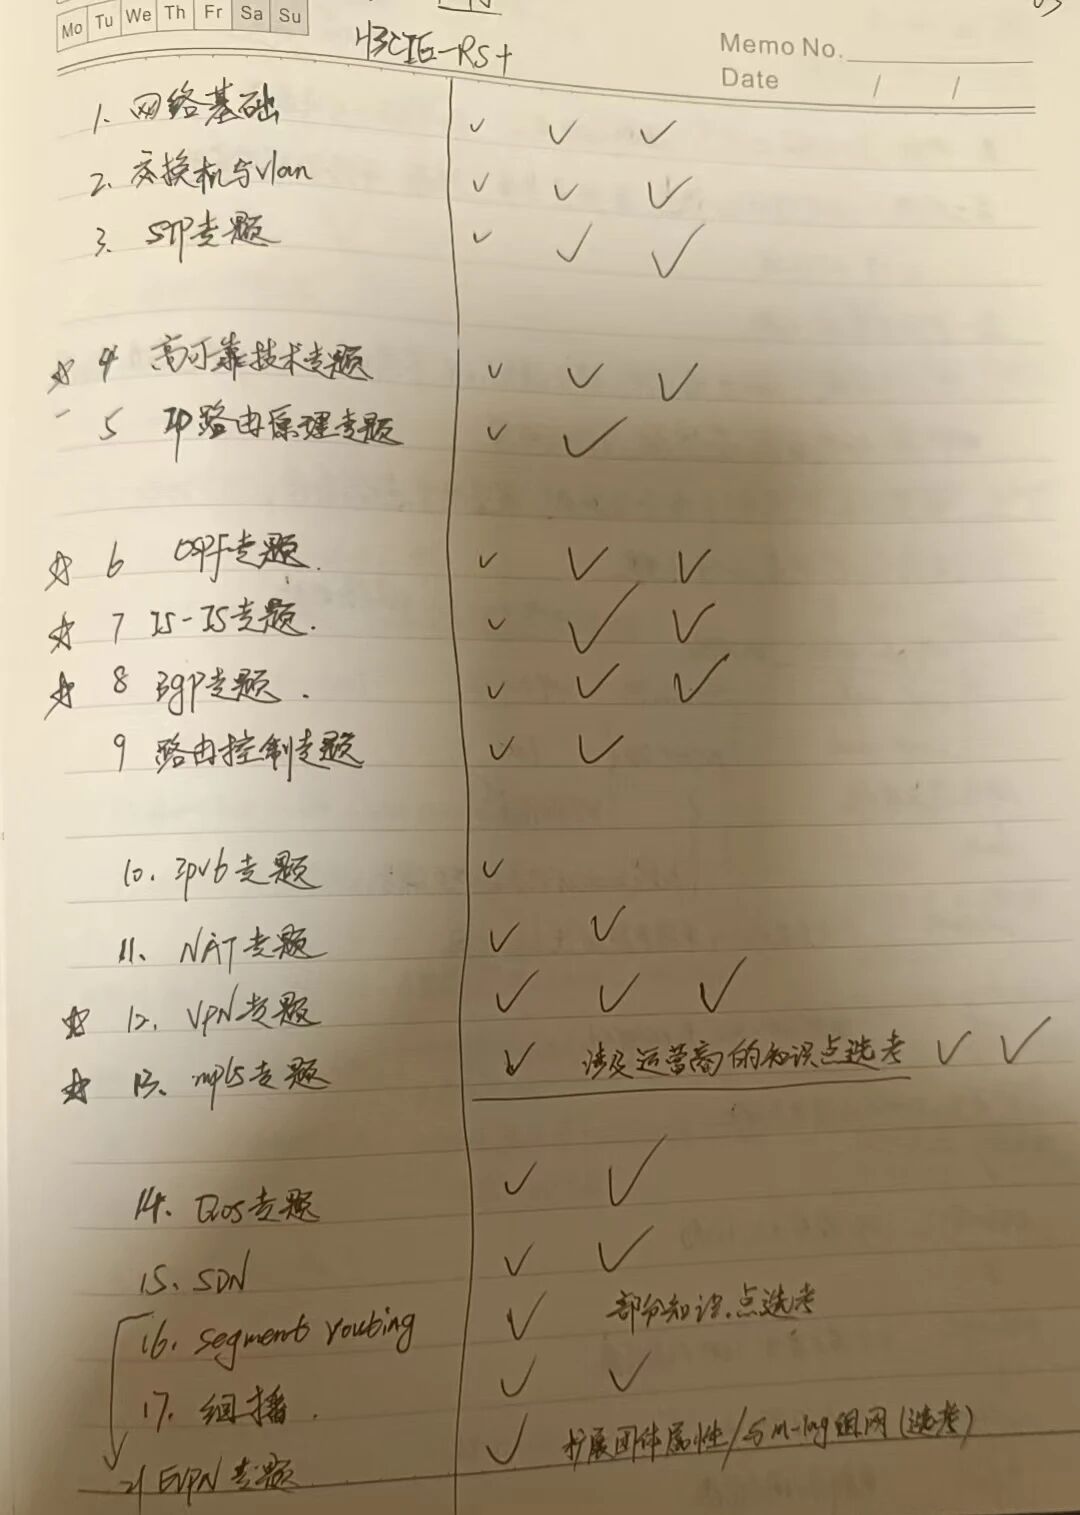 Mo Tu We Th Fr Sa Su
H3CIE-RS+
Memo No.
Date / /
1. 网络基础 ✓ ✓ ✓
2. 交换机与vlan ✓ ✓ ✓
3. STP专题 ✓ ✓ ✓
☆ 4 高可靠技术专题 ✓ ✓ ✓
5 IP路由原理专题 ✓ ✓
☆ 6 OSPF专题. ✓ ✓ ✓
☆ 7 IS-IS专题. ✓ ✓ ✓
☆ 8 Bgp专题. ✓ ✓ ✓
9 路由控制专题 ✓ ✓
10. Ipv6专题 ✓
11. NAT专题 ✓ ✓
☆ 12. VPN专题 ✓ ✓ ✓
☆ 13. mpls专题 ✓ 涉及运营商的知识点选考 ✓ ✓
14. Qos专题 ✓ ✓
15. SDN ✓ ✓
16. segment routing ✓ 部分知识点选考
17. 组播. ✓ ✓
21 EVPN专题 ✓ 扩展团体属性/与m-lag组网(选考)